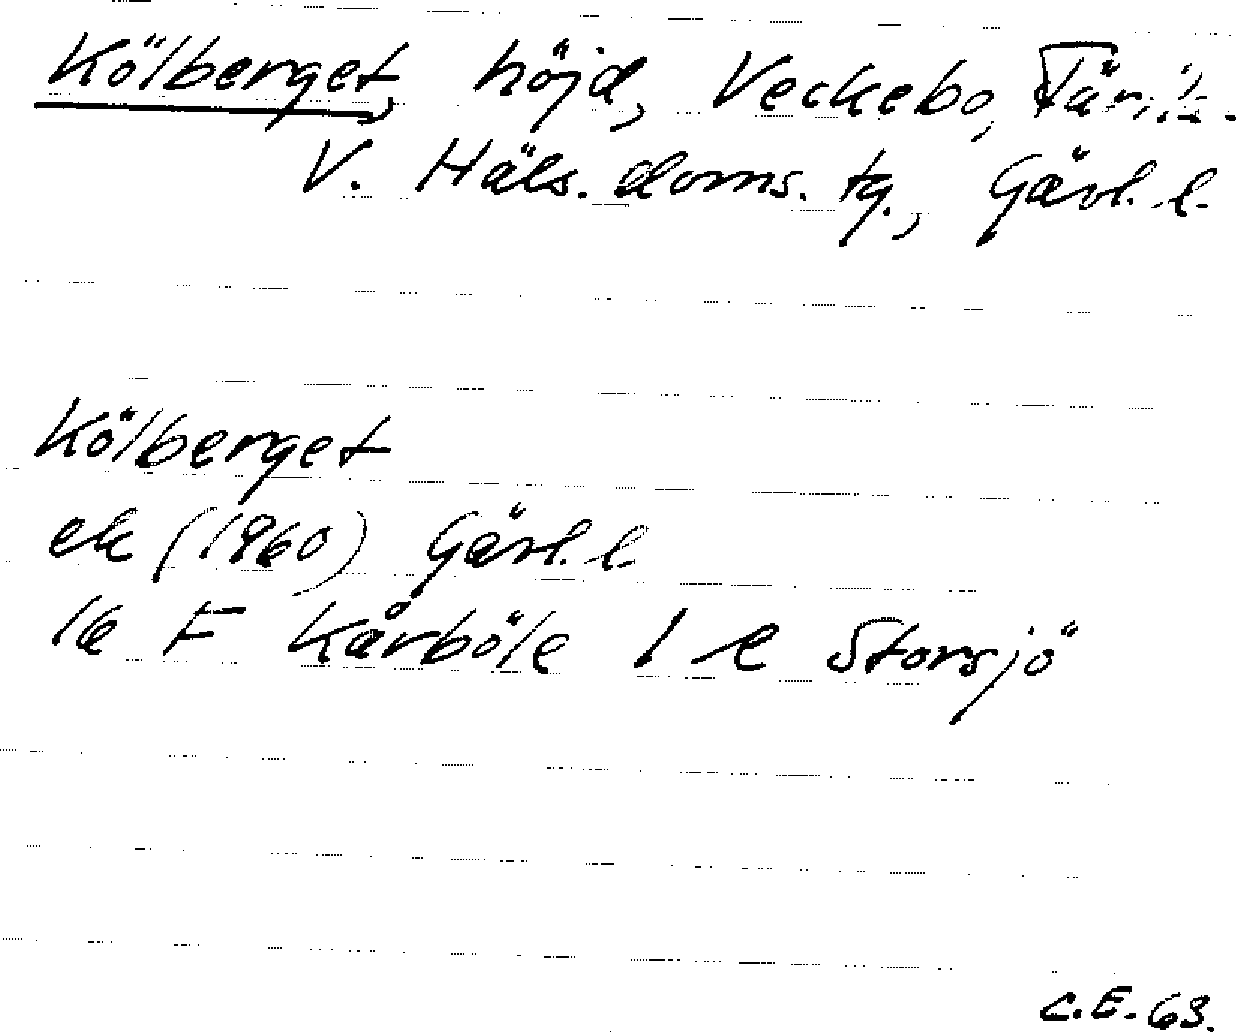 Kölberget, höjd, Veckebo, Färila
V. Häls. doms. tg., Gävl. l.
Kölberget
ek (1960) Gävl. l.
16 F Kårböle 1 e Storsjö
C.E. 63.